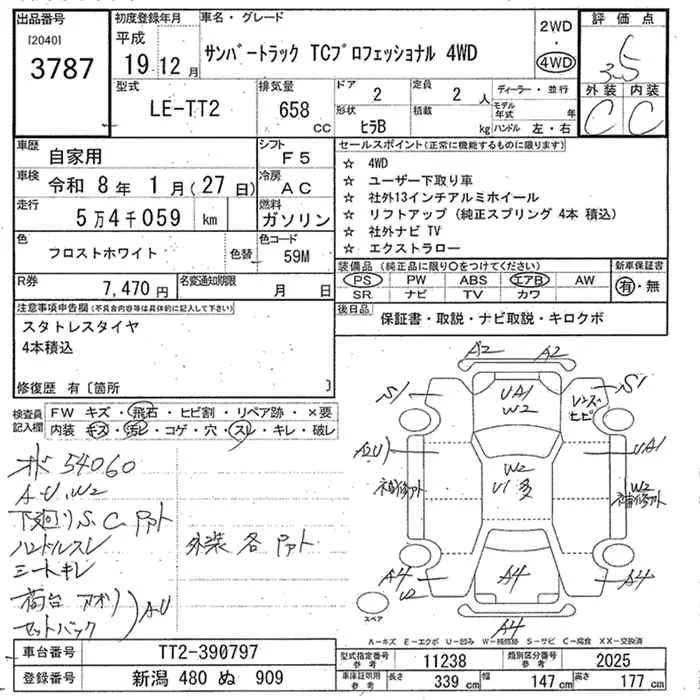 出品番号 初度登録年月 車名・グレード 2WD 評価点
[2040] 平成
3787 19 12月 サンバートラック TCプロフェッショナル 4WD 4WD 3.5
型式 排気量 ドア 2 定員 2人 ディーラー・並行 外装 内装
LE-TT2 658cc 形状 ヒラB 積載 kg モデル年式 年 C C
ハンドル 左・右
車歴 自家用 シフト F5 セールスポイント(正常に機能するものに限ります)
車検 令和 8年 1月(27日) 冷房 AC ☆ 4WD
☆ ユーザー下取り車
走行 5万4千059 km 燃料 ガソリン ☆ 社外13インチアルミホイール
☆ リフトアップ(純正スプリング 4本 積込)
☆ 社外ナビ TV
色 フロストホワイト 色替 色コード 59M ☆ エクストラロー
装備品(純正品に限り○をつけてください) 新車保証書
R券 7,470円 名変通知期限 月 日 PS PW ABS エアB AW 有・無
SR ナビ TV カワ
注意事項申告欄(不具合内容等は具体的に記入して下さい) 後日品 保証書・取説・ナビ取説・キロクボ
スタトレスタイヤ
4本積込
修復歴 有〔箇所 〕
検査員記入欄 FW キズ・飛石・ヒビ割・リペア跡・×要
内装 キズ・汚レ・コゲ・穴・スレ・キレ・破レ
54060
A.U.W2
下廻りS.C.Pアト
ハンドルスレ 外装各Pアト
シートキレ
荷台 アオリ
セットバック A.U
A2 A2
S1 UA1 W2 S1
レンズヒビ
A2U UA1
W2 U1多
補修アト W2 補修アト
A4 U2 A4 A4
スペア A4
A-キズ E-エクボ U-凹み W-補修跡 S-サビ C-腐食 XX-交換済
車台番号 TT2-390797 型式指定番号 参考 11238 類別区分番号 参考 2025
登録番号 新潟 480 ぬ 909 車庫証明用 参考 長さ 339 cm 幅 147 cm 高さ 177 cm